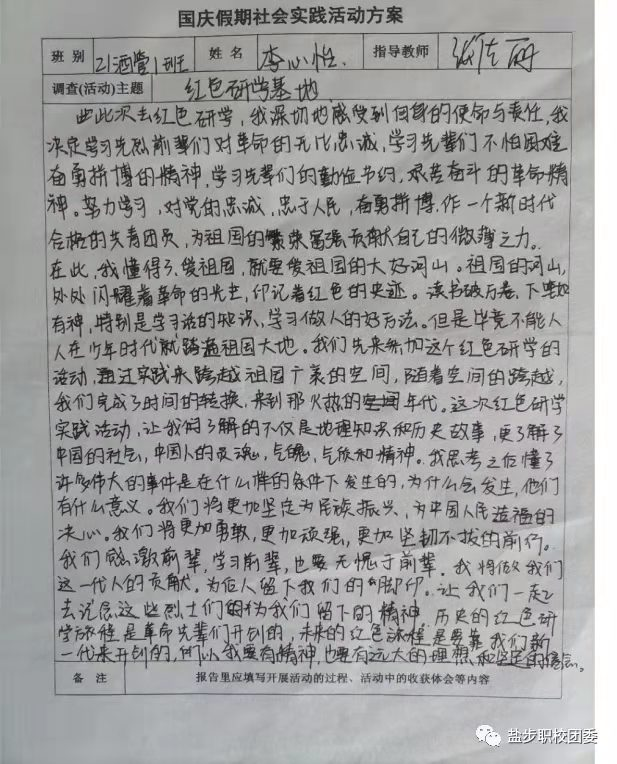 国庆假期社会实践活动方案
班 别 21酒管1班 姓 名 李心怡. 指导教师
调查(活动)主题 红色研学基地
由此次去红色研学，我深切地感受到自身的使命与责任，我
决定学习先烈前辈们对革命的无比忠诚，学习先辈们不怕困难
奋勇拼博的精神，学习先辈们的勤俭节约，艰苦奋斗的革命精
神。努力学习，对党的忠诚，忠于人民，奋勇拼博，作一个新时代
合格的共青团员，为祖国的繁荣富强贡献自己的微薄之力。
在此，我懂得了，爱祖国，就要爱祖国的大好河山。祖国的河山，
处处闪耀着革命的光芒，印记着红色的史迹。读书破万卷，下笔如
有神，特别是学习活的知识，学习做人的好方法。但是毕竟不能人
人在少年时代就跨遍祖国大地。我们先来参加这个红色研学的
活动，通过实践来跨越祖国广袤的空间，随着空间的跨越，
我们完成了时间的转换，来到那火热的年代。这次红色研学
实践活动，让我们了解的不仅是地理知识和历史故事，更了解了
中国的社会，中国人的灵魂，气魄，气质和精神。我思考之后懂了
许多伟大的事件是在什么样的条件下发生的，为什么会发生，他们
有什么意义。我们将更加坚定为民族振兴，为中国人民造福的
决心。我们将更加勇敢，更加顽强，更加坚韧不拔的前行。
我们感激前辈，学习前辈，也要无愧于前辈。我将做我们
这一代人的贡献。为后人留下我们的“脚印”。让我们一起
去记念这些烈士们的为我们留下的精神，历史的红色研
学旅程是革命先辈们开创的，未来的红色旅程是要靠我们新
一代来开创的，所以我要有精神，也要有远大的理想和坚定的信念。
备 注 报告里应填写开展活动的过程、活动中的收获体会等内容
盐步职校团委